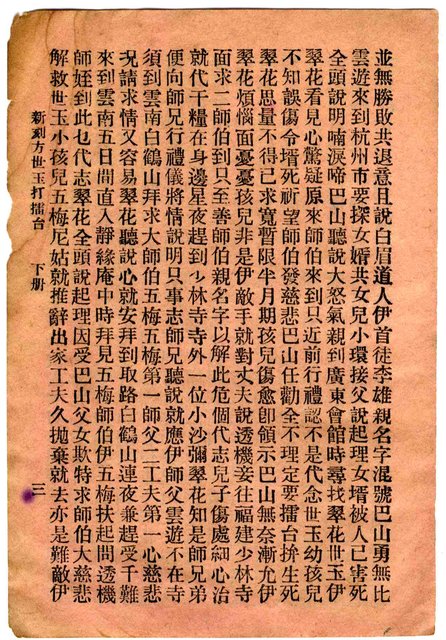 並無勝敗共退意且說白眉道人伊首徒李雄親名字混號巴山勇無比
雲遊來到杭州市要探女婿共女兒小環接父說起理女壻被人已害死
全頭說明喃淚啼巴山聽說大怒氣親到廣東會館時尋找翠花世玉伊
翠花看見心驚疑原來師伯來到只近前行禮認不是代念世玉幼孩兒
不知誤傷令壻死祈望師伯發慈悲巴山任勸全不理定要擂台拚生死
翠花思量不得已求寬暫限半月期孩兒傷愈卽領示巴山無奈漸允伊
翠花煩惱面憂憂孩兒非是伊敵手就對丈夫說透機妾往福建少林寺
面求二師伯到只至善師伯親名字以解此危個代志兒子傷處細心治
就代干糧在身邊星夜趕到少林寺寺外一位小沙彌翠花知是師兄弟
便向師兄行禮儀將情說明只事志師兄聽說就應伊師父雲遊不在寺
須到雲南白鶴山拜求大師伯五梅五梅第一師父二工夫第一心慈悲
況請求情又容易翠花聽說心就安拜到取路白鶴山連夜兼趕受千難
來到雲南五日間直入靜緣庵中時拜見五梅師伯伊五梅扶起問透機
師姪到此乜代志翠花全頭說起理因受巴山父女欺特求師伯大慈悲
解救世玉小孩兒五梅尼姑就推辭出家工夫久拋棄就去亦是難敵伊
新刻方世玉打擂台 下册 三